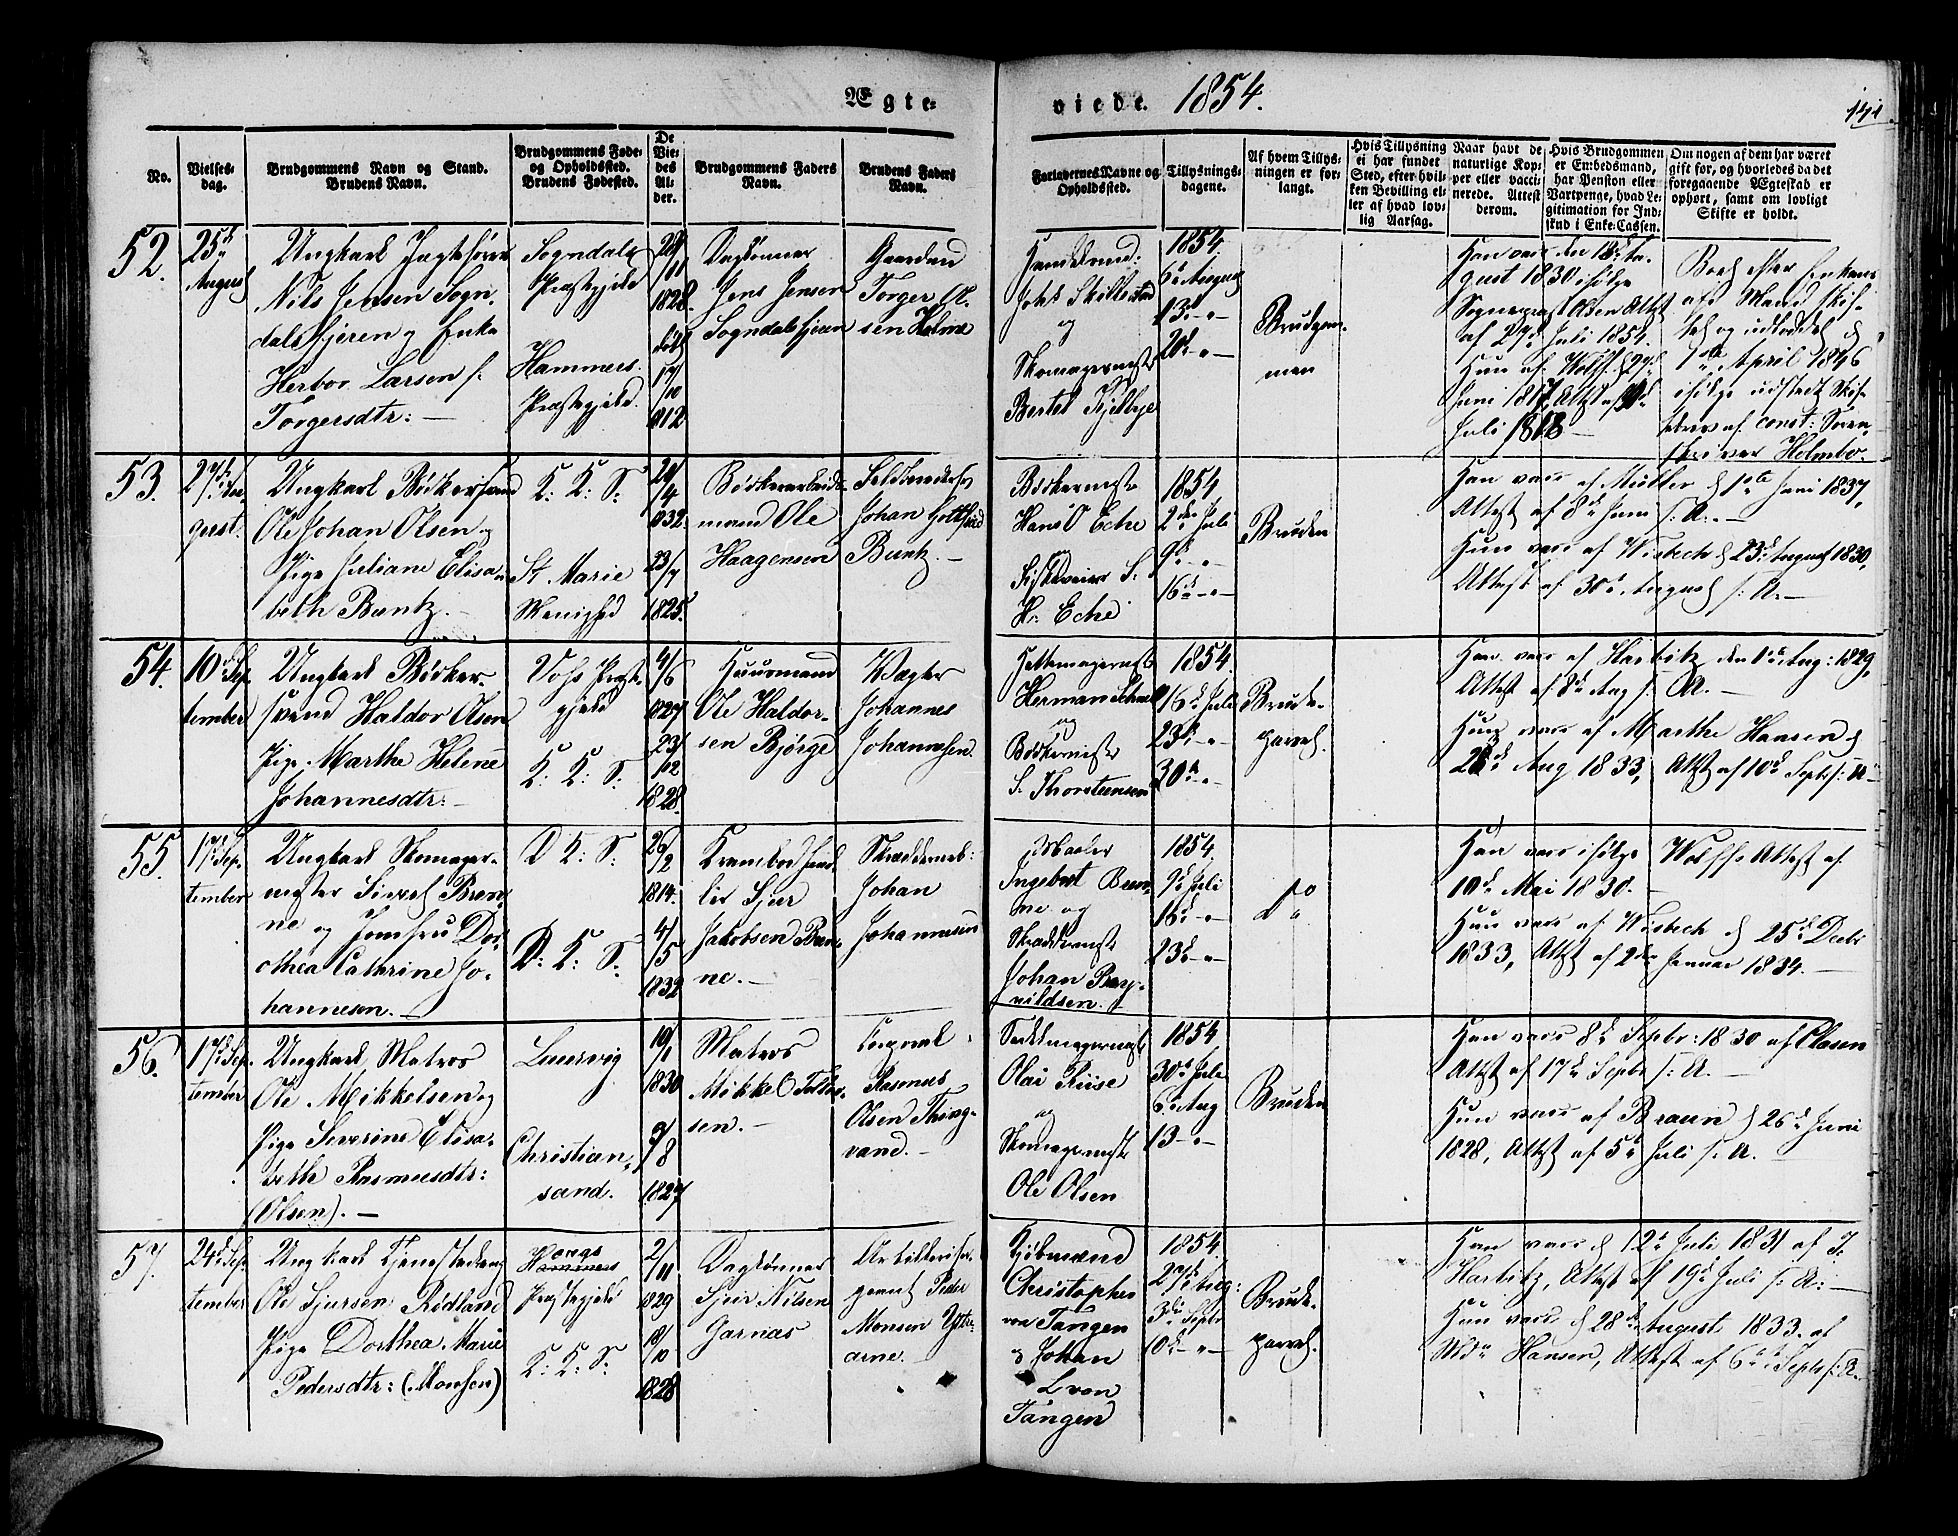 Ægte-
viede. 1854.
141.
No.
Vielses-
dag.
Brudgommens Navn og Stand.
Brudens Navn.
Brudgommens Føde-
og Opholdssted.
Brudens Fødested.
De
Vie-
des
Al-
der.
Brudgommens Faders
Navn.
Brudens Faders
Navn.
Forlovernes Navne og
Opholdssted.
Tillysnings-
dagene.
Af hvem Tillys-
ningen er for-
langt.
Hvis Tillysning
ei har fundet
Sted, efter hvil-
ken Bevilling el-
ler af hvad lov-
lig Aarsag.
Naar havt de
naturlige Kop-
per eller vacci-
nerede. Attest
derom.
Hvis Brudgommen
er Embedsmand,
har Pension eller
Vartpenge, hvad Le-
gitimation for Ind-
skud i Enke-Cassen.
Om nogen af dem har været
gift før, og hvorledes da det
foregaaende Ægteskab er
ophørt, samt om lovligt
Skifte er holdt.
52.
25de
August
Ungkarl Jagtfører
Nils Jensen Sogn-
dalsfjeren og Enke
Herbor Larsen f:
Torgersdtr: —
Sogndals
Præstegjeld
Hammers
Præstegjeld.
28/
11
1828.
født
17/
10
1812
Daglønner
Jens Jensen
Sogndalsfjeren
Gaardmd
Torger Ol-
sen Holme
Handelsmd:
Johs Skillestad
og
Skomagermstr
Bertel Kjelbye
1854
6te August
13de -"-
20de -"-
Brudgom-
men
Han vacc. den 18de Au-
gust 1830 ifølge
Sognepræst Aaen Attst
af 29de Juli 1854.
Hun af Wolff d 27de
Juni 1817, Attst af 9de
Juli 1818 —
Boet efter Enkens
afd. Mand skif-
tet og udloddet d
1ste April 1846
ifølge udstedt Skif-
tebrev af const: Soren-
skriver Holmbo.
53.
27de Au-
gust.
Ungkarl Bødkersvend
Ole Johan Olsen og
Pige Juliane Elisa-
beth Buntz. —
K: K: S:
St. Marie
Menighed
24/
4
1832
23/
7
1825.
Bødkerarbeids-
mand Ole
Haagensen
Feldberedersv
Johan Gottfried
Buntz. —
Bødkermstr
Hans O Eche
H. Eche
1854
2den Juli
9de -"-
16de -"-
Bruden
Han vacc af Müller d 1ste Juni 1837,
Attest af 8de Juni s. A. —
Hun vacc af Wisbech d 23de August 1830,
Attest af 30te August s. A. —
54.
10de Sep-
tember
Ungkarl Bødker-
svend Haldor Olsen
Pige Marthe Helene
Johannesdtr: —
Voss Præste-
gjeld
K: K: S:
4/
6
1827
23/
12
1828.
Huusmand
Ole Haldor-
sen Bjørge
Vægter
Johannes
Johannesen.
Hattemagermstr
og
Bødkermstr
S. Thorsteensen
1854.
16de Juli
23de -"-
30te -"-
Brude-
parret.
Han vacc af Harbitz den 1ste Aug: 1829,
Attest af 8de Aug s. A. —
Hun vacc af Marthe Hansen d
28de Aug 1833, Attst af 10de Septr s: A —
55.
17de Sep-
tember
Ungkarl Skomager-
mester Siverth Brun-
ne og Jomfru Dor-
othea Cathrine Jo-
hannesen. —
D K: S:
D: K: S:
26/
2
1814.
4/
5
1832
Krambodhand-
ler Sjur
Jakobsen Brun-
ne. —
Skræddermstr:
Johan
Johannesen
Maler
Ingebrt Brun-
ne og
Skræddermstr
Johan Bag-
vildsen.
1854.
9de Juli
16de -"-
23de -"-
Do
Han vacc ifølge Wolffs Attst af
10de Mai 1830. —
Hun vacc af Wisbech d 25de Decbr
1833, Attst af 2den Januar 1834. —
56.
17de Sep-
tember
Ungkarl Matros
Ole Mikkelsen og
Pige Severine Elisa-
beth Rasmusdtr:
(Olsen). —
Laurvig
Christian-
sand.
19/
1
1830
7/
8
1827
Matros
Mikkel
sen. —
Rasmus
Olsen Thing-
vand. —
Sadelmagermstr
Olai Riise
og
Skomagermstr
Ole Olsen
1854
30te Juli
6te Aug
13 -"-
Bruden
Han vacc 8de Septbr: 1830 af Clasen
Attst af 17de Septbr s: A. —
Hun vacc af Braun d 26de Juni
1828, Attst af 5te Juli s. A. —
57.
24de Sep-
tember
Ungkarl Tjenestedreng
Ole Sjursen Rødland
Pige Dorthea Marie
Pedersdtr: (Monsen)
Hougs
Hammers
Præstegjeld
K: K: S:
2/
11
1829
18/
10
1828
Daglønner
Sjur Nilsen
Garnaas
Artillerifer-
geant Peder
Monsen Ytre-
arne. —
Kjøbmænd
Christopher
von Tangen
og Johan
L von
Tangen
1854.
27de Aug:
3die Septbr
10de -"-
Brude-
parret.
Han vacc d 12te Juli 1831 af J.
Harbitz, Attest af 19de Juli s: A: —
Hun vacc d 28de August 1833. af
Md. Hansen, Attest af 6te Septr s: A. —